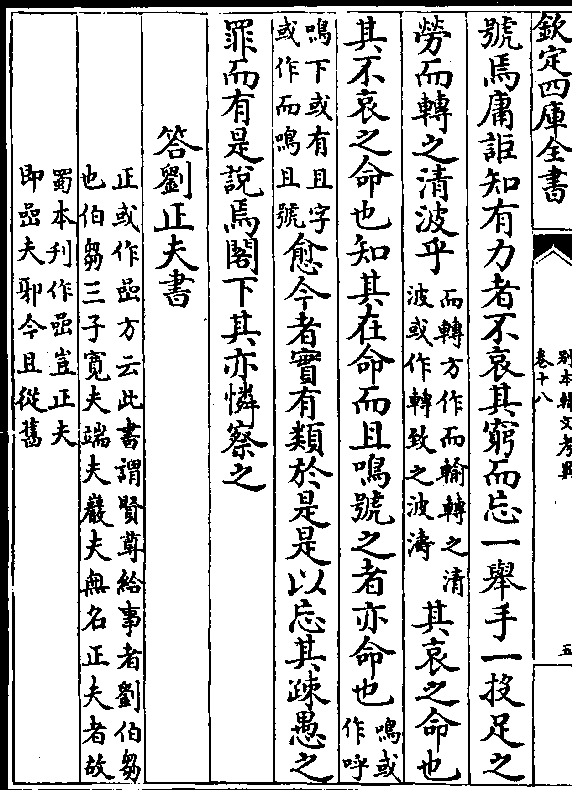 欽定四庫全書
别本韓文考異
卷十八
五
號焉庸詎知有力者不哀其窮而忘一舉手一投足之
勞而轉之清波乎
而轉方作而輸轉之清
波或作轉致之波濤
其哀之命也
其不哀之命也知其在命而且鳴號之者亦命也
鳴或
作呼
鳴下或有且字
或作而鳴且號
愈今者實有類於是是以忘其疎愚之
罪而有是說焉閣下其亦憐察之
答劉正夫書
正或作嵒方云此書謂賢尊給事者劉伯芻
也伯芻三子寛夫端夫巖夫無名正夫者故
蜀本刋作嵒豈正夫
即嵒夫邪今且從舊